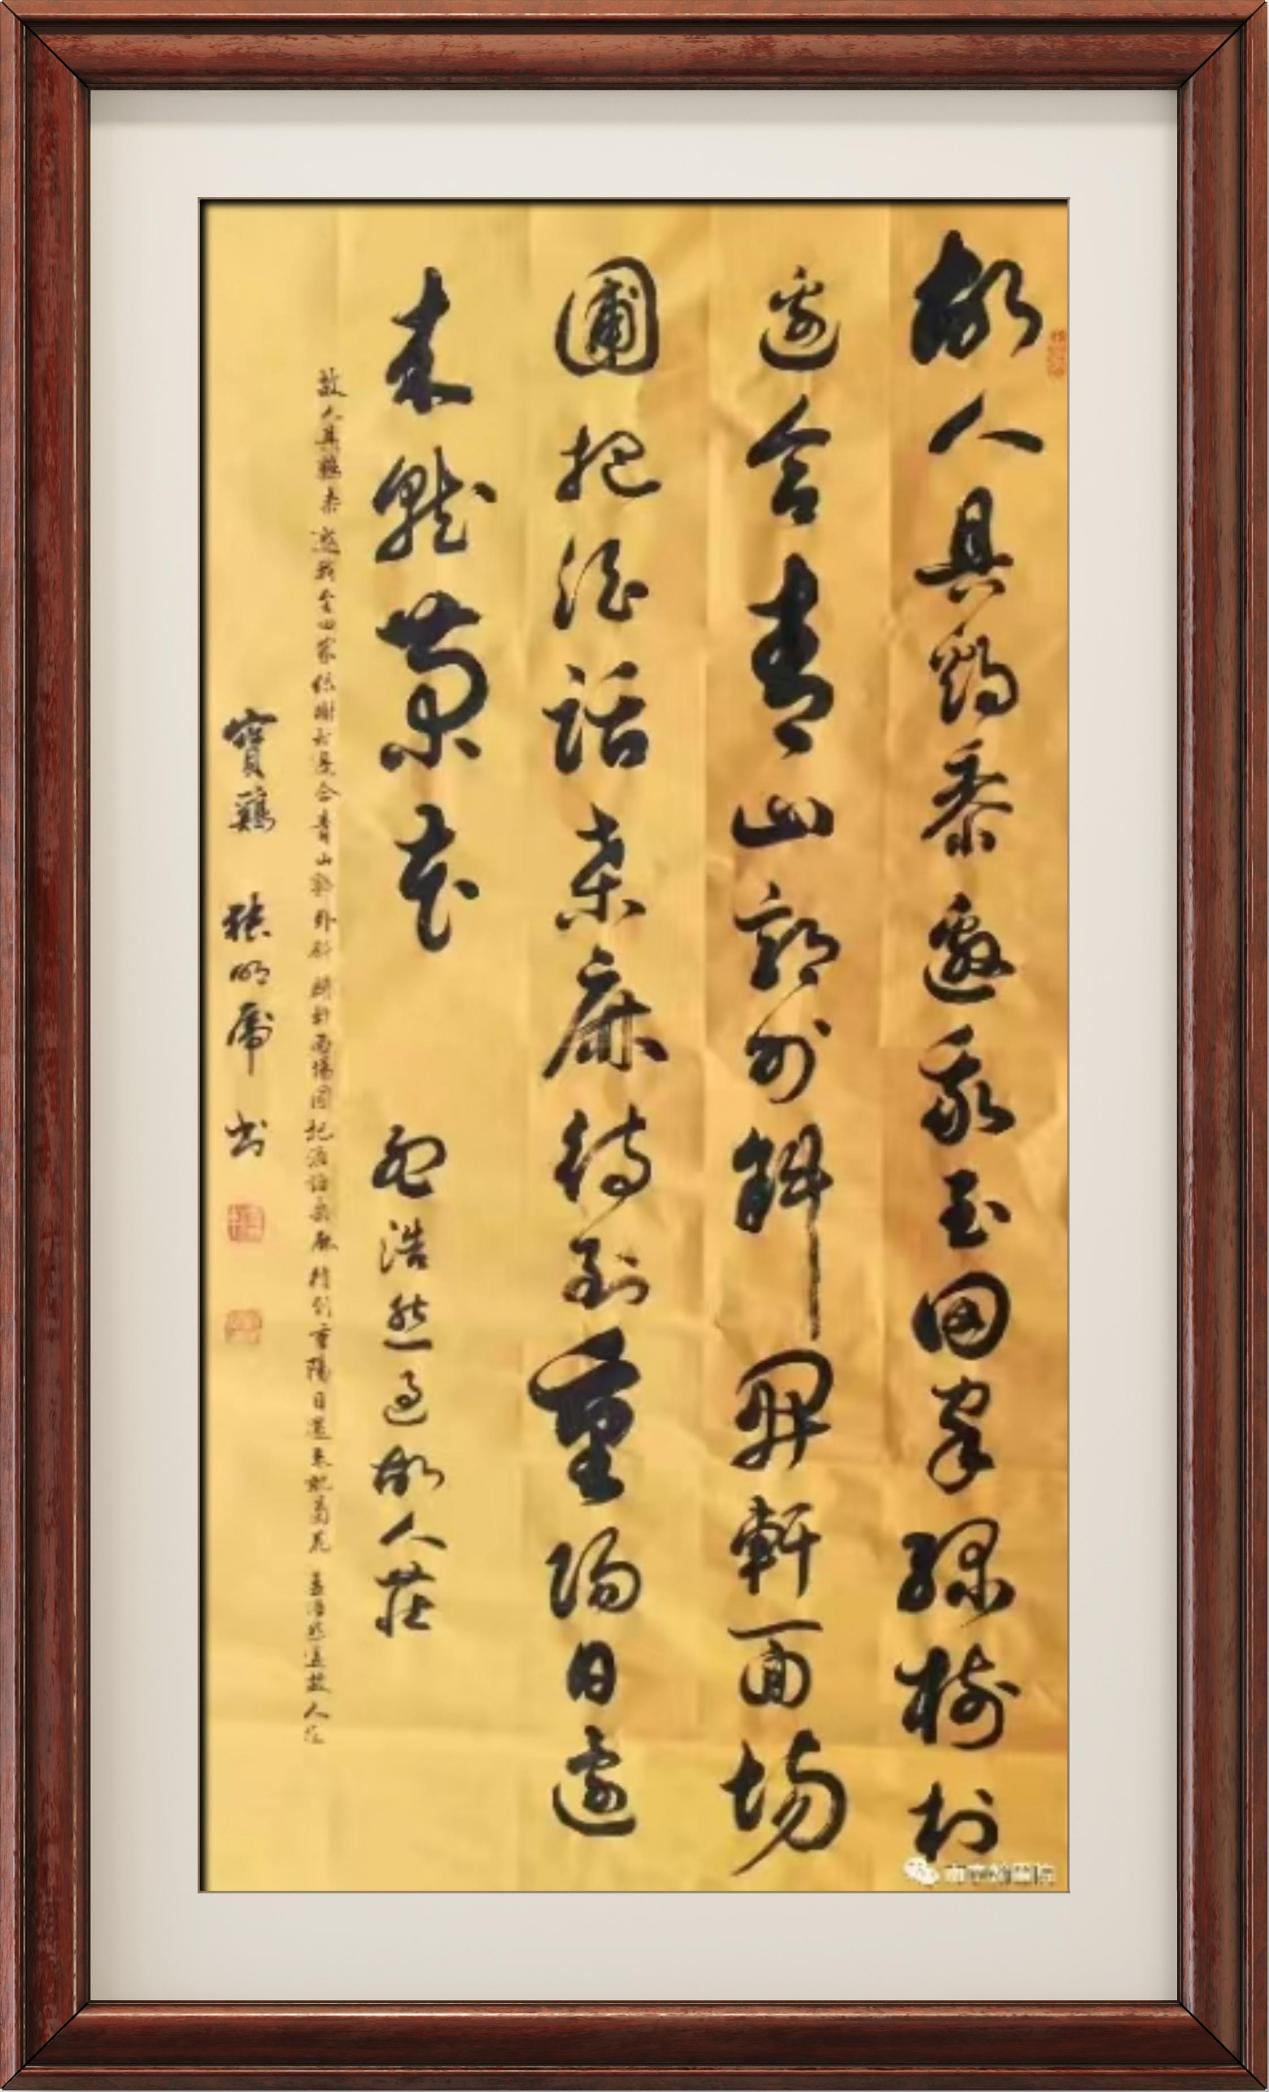 故人具鷄黍邀我至田家緑樹村
邊合青山郭外斜開軒面場
圃把酒話桑麻待到重陽日還
来就菊花 孟浩然過故人莊
故人具雞黍邀我至田家綠樹村邊合青山郭外斜開軒面場圃把酒話桑麻待到重陽日還来就菊花 孟浩然過故人莊
寶鷄 張明虎 书